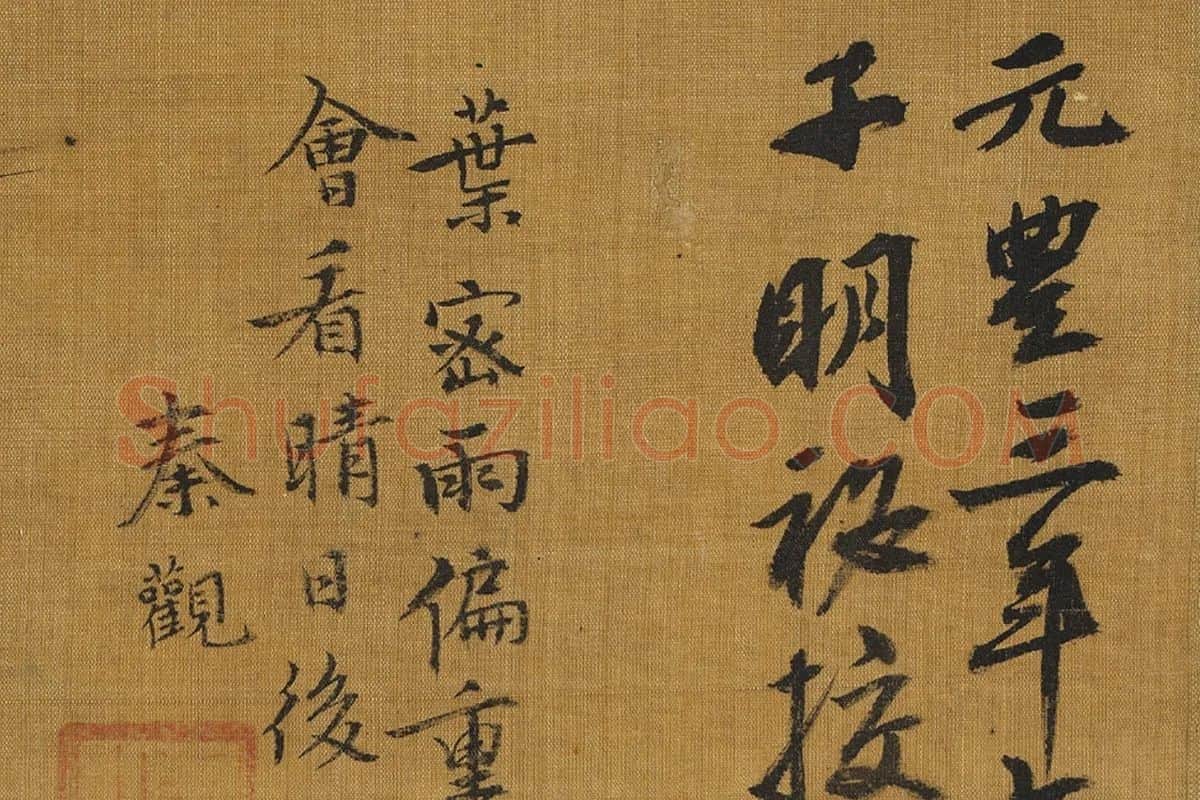 元豐三年
子明秘校
葉密雨偏重
會看晴日後
秦觀
Shufaziliao.COM